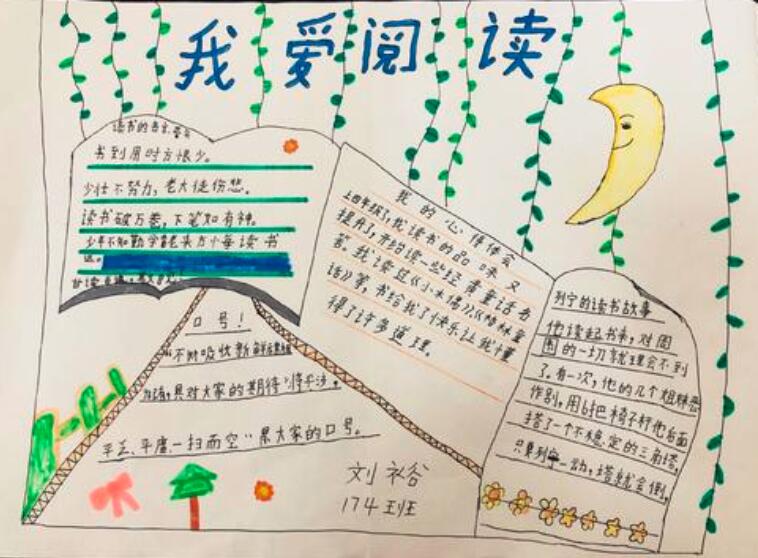 我爱阅读
读书的名言
书到用时方恨少。
少壮不努力,老大徒伤悲。
读书破万卷,下笔如有神。
少年不知勤学
读书
迟。
我的心得体会
上四年级了,我读书的品味又
提升了,开始读一些经典童话名
著。我读过《小木偶》《格林童
话》等,书给我了快乐让我懂
得了许多道理。
列宁的读书故事
他读起书来,对周
围的一切就理会不到
了。有一次,他的几个姐妹恶
作剧,用6把椅子在他后面
搭了一个不稳定的三角塔,
只要列宁一动,塔就会倒,
口号!
"不断吸收新
是对大家的期待"将平淡、
平乏、平庸一扫而空"是大家的口号。
刘谷
174班